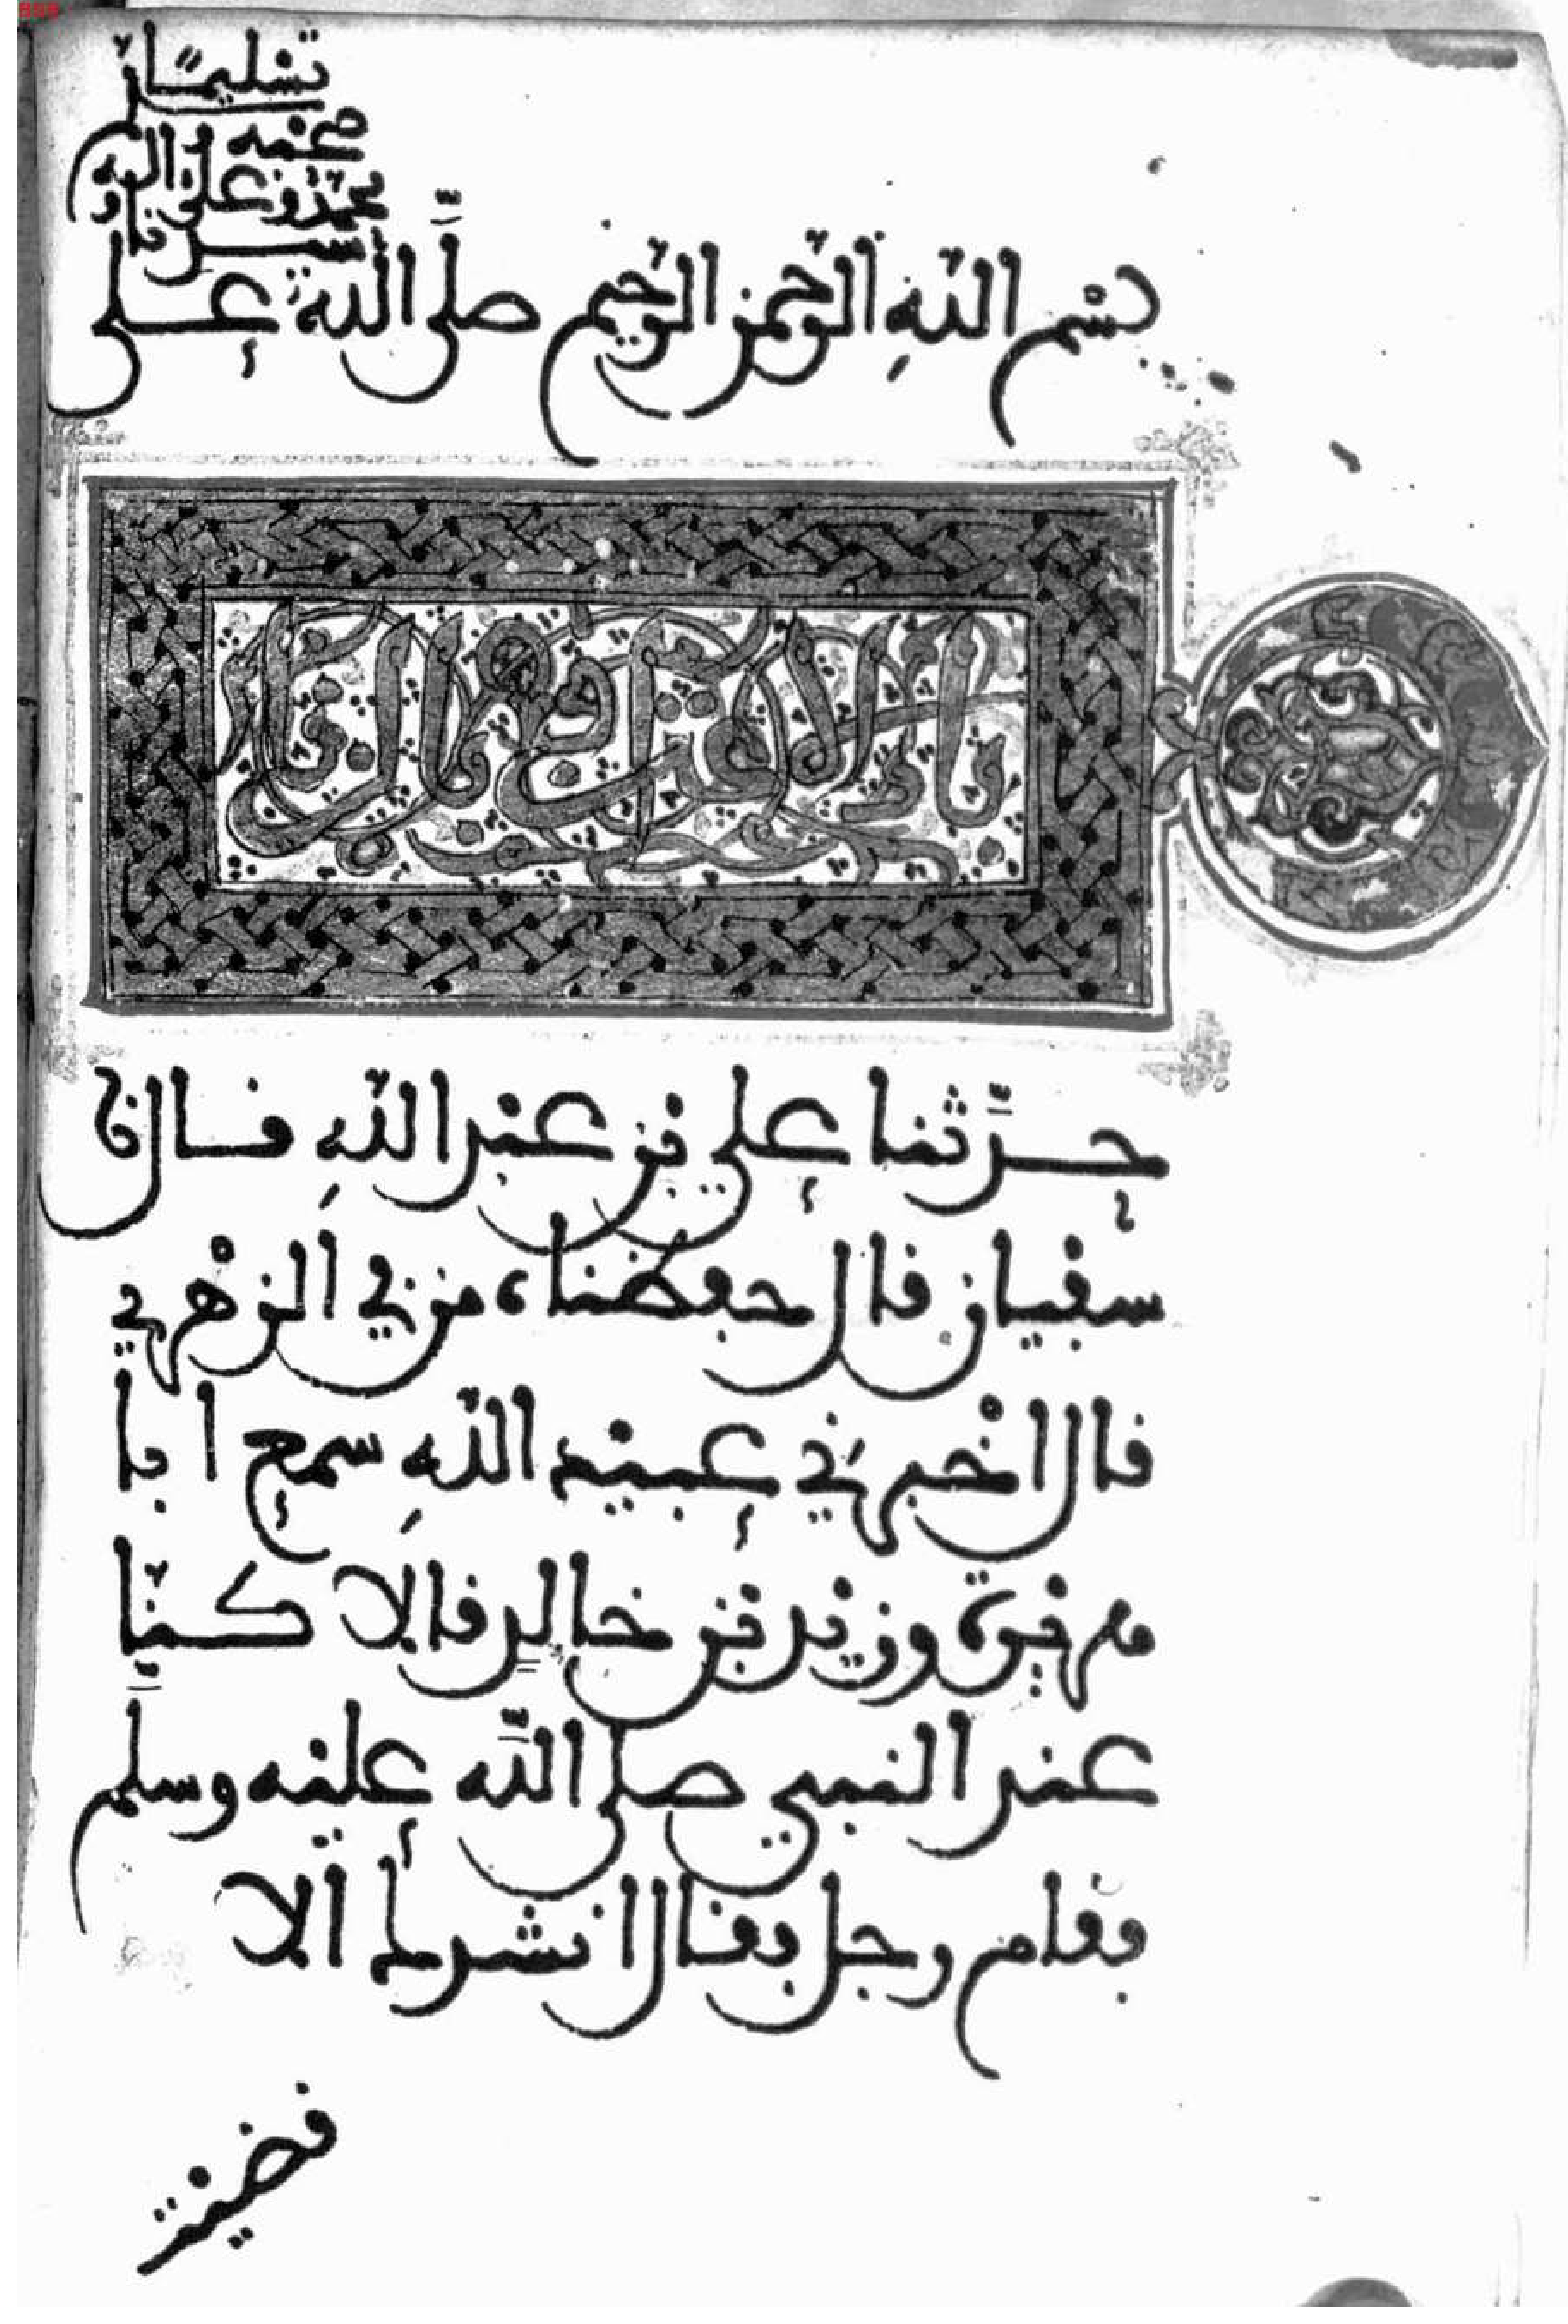 بسم الله الرحمن الرحيم صلى الله على
سيدنا
محمد وعلى اله و
صحبه وسلم
تسليما
باب الاعتراف بالزنا
حدثنا علي بن عبد الله قال نا
سفيان قال حفظناه من في الزهري
قال اخبرني عبيد الله سمع ابا
هريرة وزيد بن خالد قالا كنا
عند النبي صلى الله عليه وسلم
فقام رجل فقال انشدك الا
قضيت